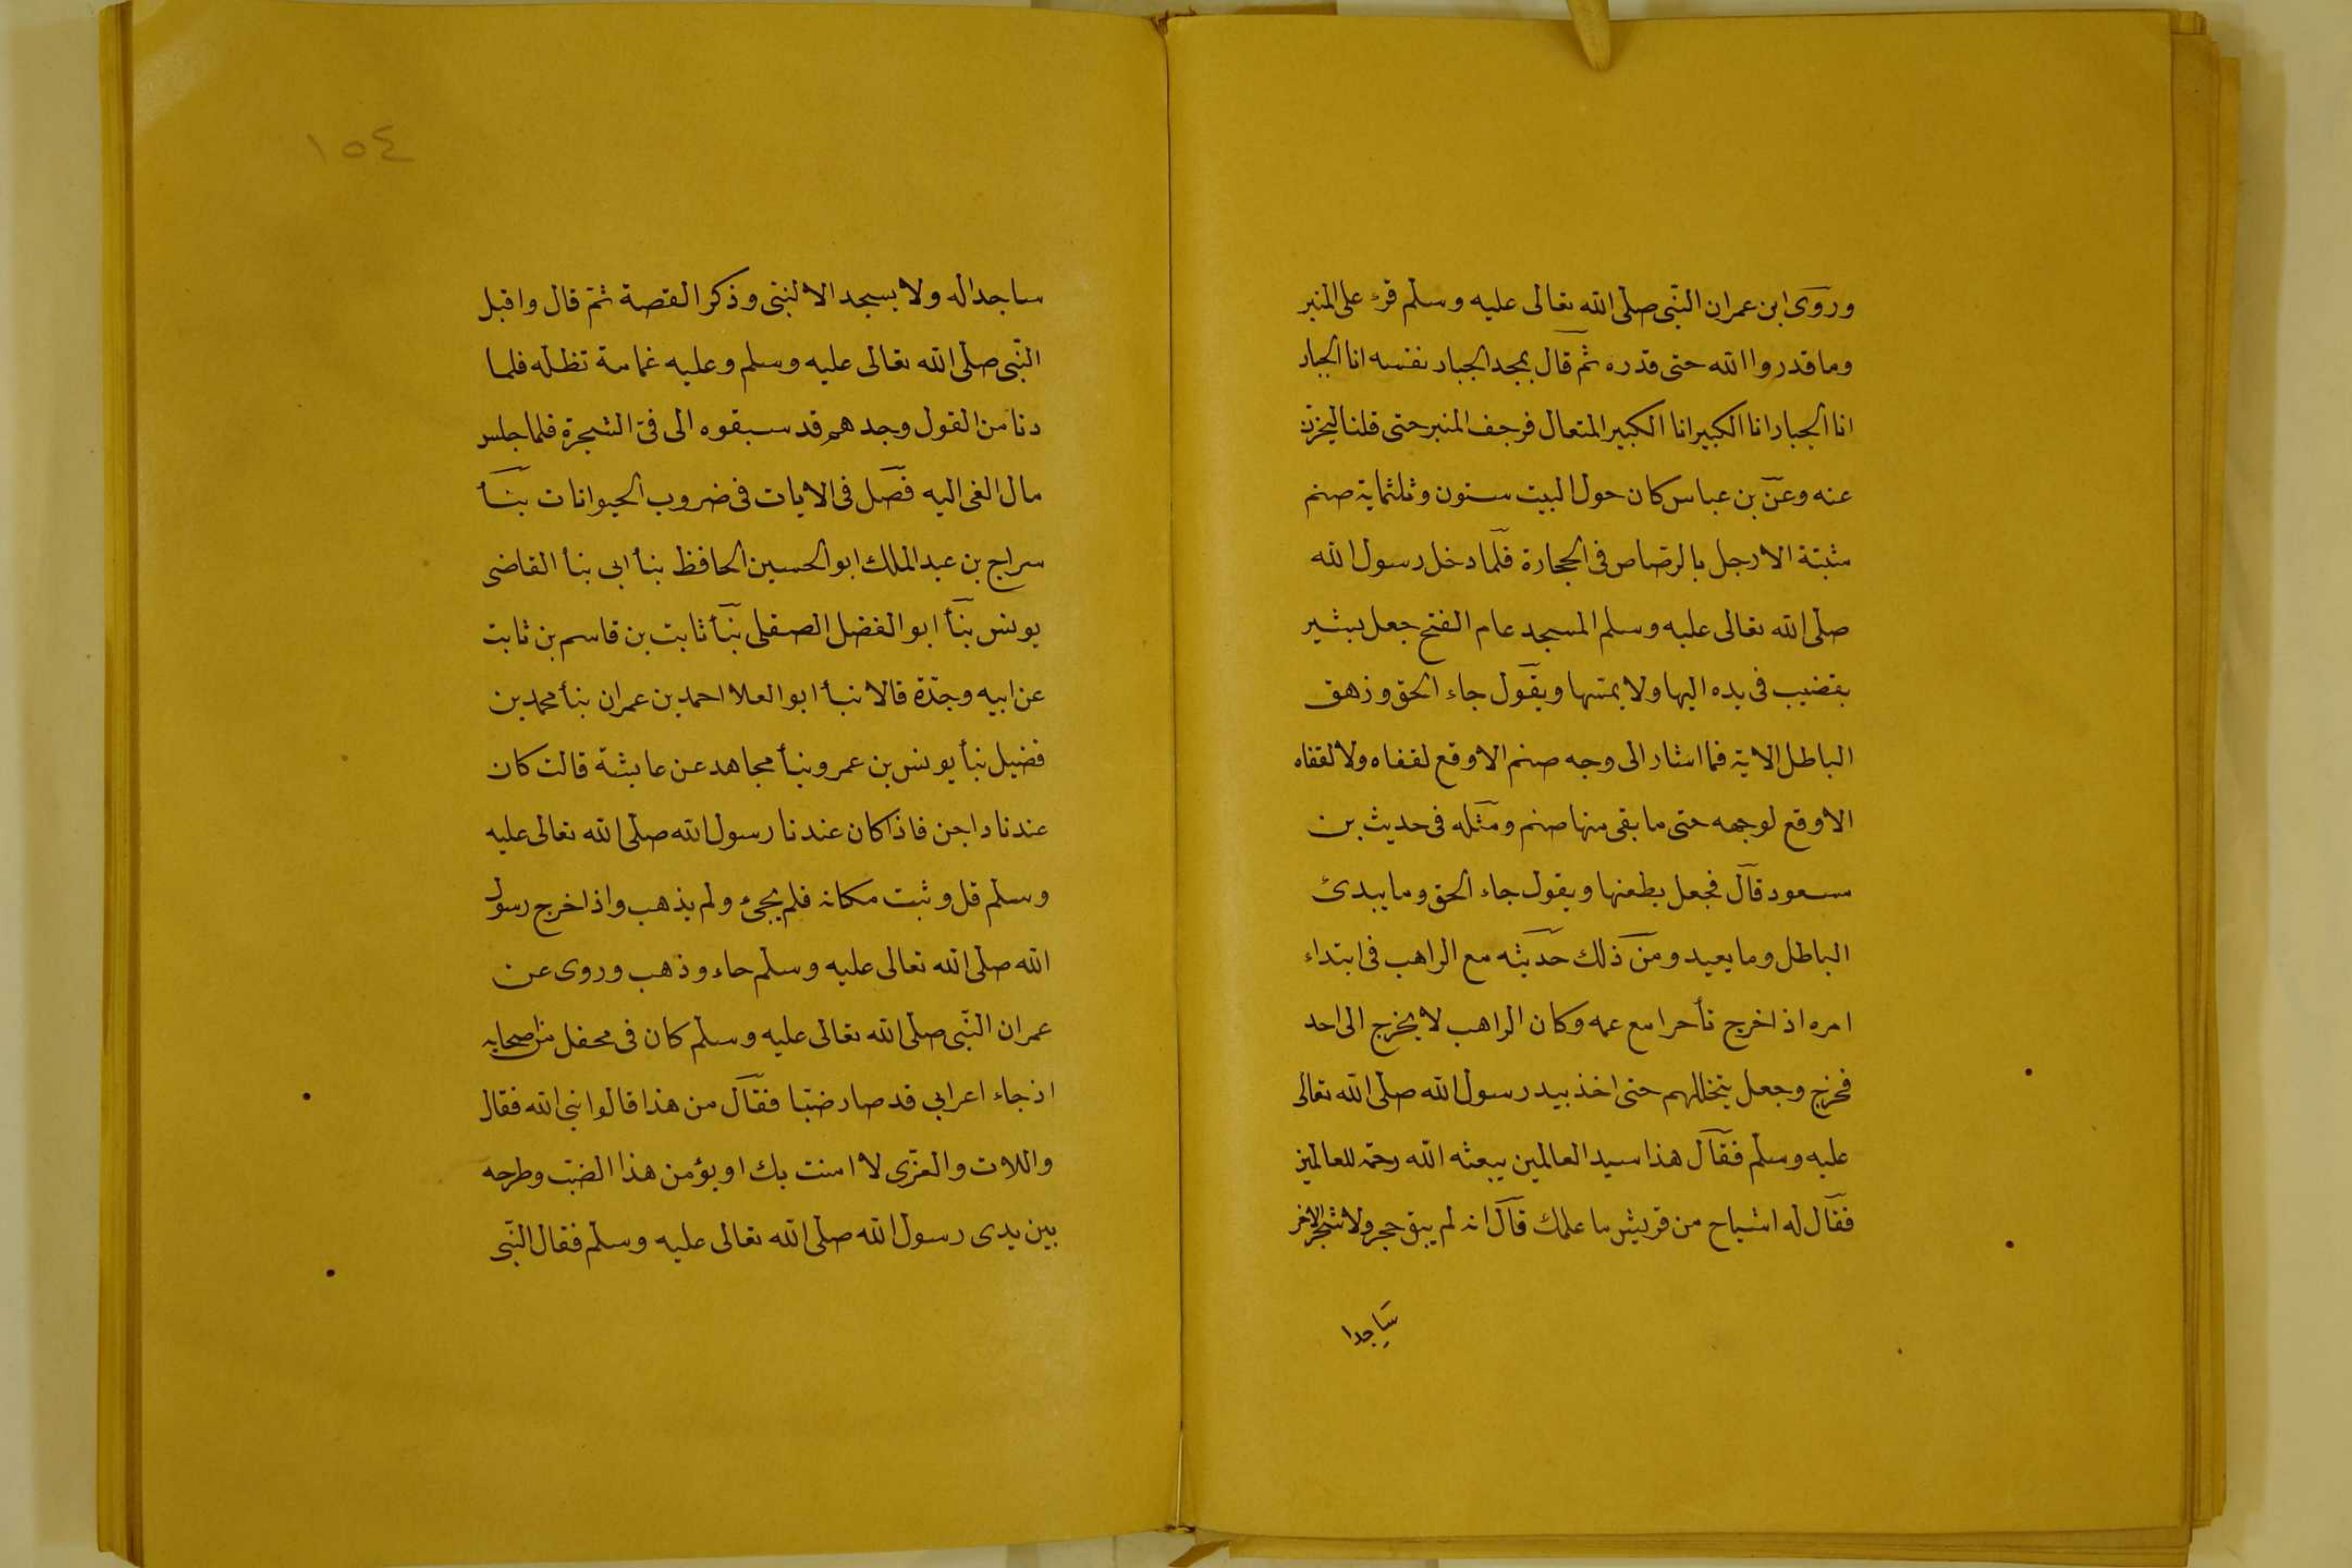 وروى ابن عمر ان النبى صلى الله تعالى عليه وسلم قرء على المنبر
وما قدروا الله حتى قدره ثم قال يمجد الجبار نفسه انا الجبار
انا الجبار انا الكبير انا الكبير المتعال فرجف المنبر حتى قلنا ليخرن
عنه وعن بن عباس كان حول البيت ستون وثلثماية صنم
مثبتة الارجل بالرصاص فى الحجارة فلما دخل رسول الله
صلى الله تعالى عليه وسلم المسجد عام الفتح جعل يشير
بقضيب فى يده اليها ولا يمسها ويقول جاء الحق وزهق
الباطل الاية فما اشار الى وجه صنم الا وقع لقفاه ولا لقفاه
الا وقع لوجهه حتى ما بقى منها صنم ومثله فى حديث بن
مسعود قال فجعل يطعنها ويقول جاء الحق وما يبدئ
الباطل وما يعيد ومن ذلك حديثه مع الراهب فى ابتداء
امره اذ اخرج تأحرا مع عمه وكان الراهب لا يخرج الى احد
فخرج وجعل يتخللهم حتى اخذ بيد رسول الله صلى الله تعالى
عليه وسلم فقال هذا سيد العالمين يبعثه الله رحمة للعالمين
فقال له اشياح من قريش ما علمك قال انه لم يبق حجر ولا شجر الا خر
ساجدا
١٥٤
ساجدا له ولا يسجد الا لنبى وذكر القصة ثم قال واقبل
النبى صلى الله تعالى عليه وسلم وعليه غمامة تظله فلما
دنا من القول وجدهم قد سبقوه الى فئ الشجرة فلما جلس
مال الفئ اليه فصل فى الايات فى ضروب الحيوانات بنأ
سراج بن عبد الملك ابو الحسين الحافظ بنأ ابى بنأ القاضى
يونس بنأ ابو الفضل الصقلى بنأ ثابت بن قاسم بن ثابت
عن ابيه وجدة قالا نبأ ابو العلا احمد بن عمران بنأ محمد بن
فضيل نبأ يونس بن عمرو بنأ مجاهد عن عايشة قالت كان
عندنا داجن فاذا كان عندنا رسول الله صلى الله تعالى عليه
وسلم قل وثبت مكانه فلم يجئ ولم يذهب واذا خرج رسول
الله صلى الله تعالى عليه وسلم حاء وذهب وروى عن
عمر ان النبى صلى الله تعالى عليه وسلم كان فى محفل من اصحابه
اذ جاء اعرابي قد صاد ضبا فقال من هذا قالوا نبى الله فقال
واللات والعزى لا امنت بك او يؤمن هذا الضب وطرحه
بين يدى رسول الله صلى الله تعالى عليه وسلم فقال النبى